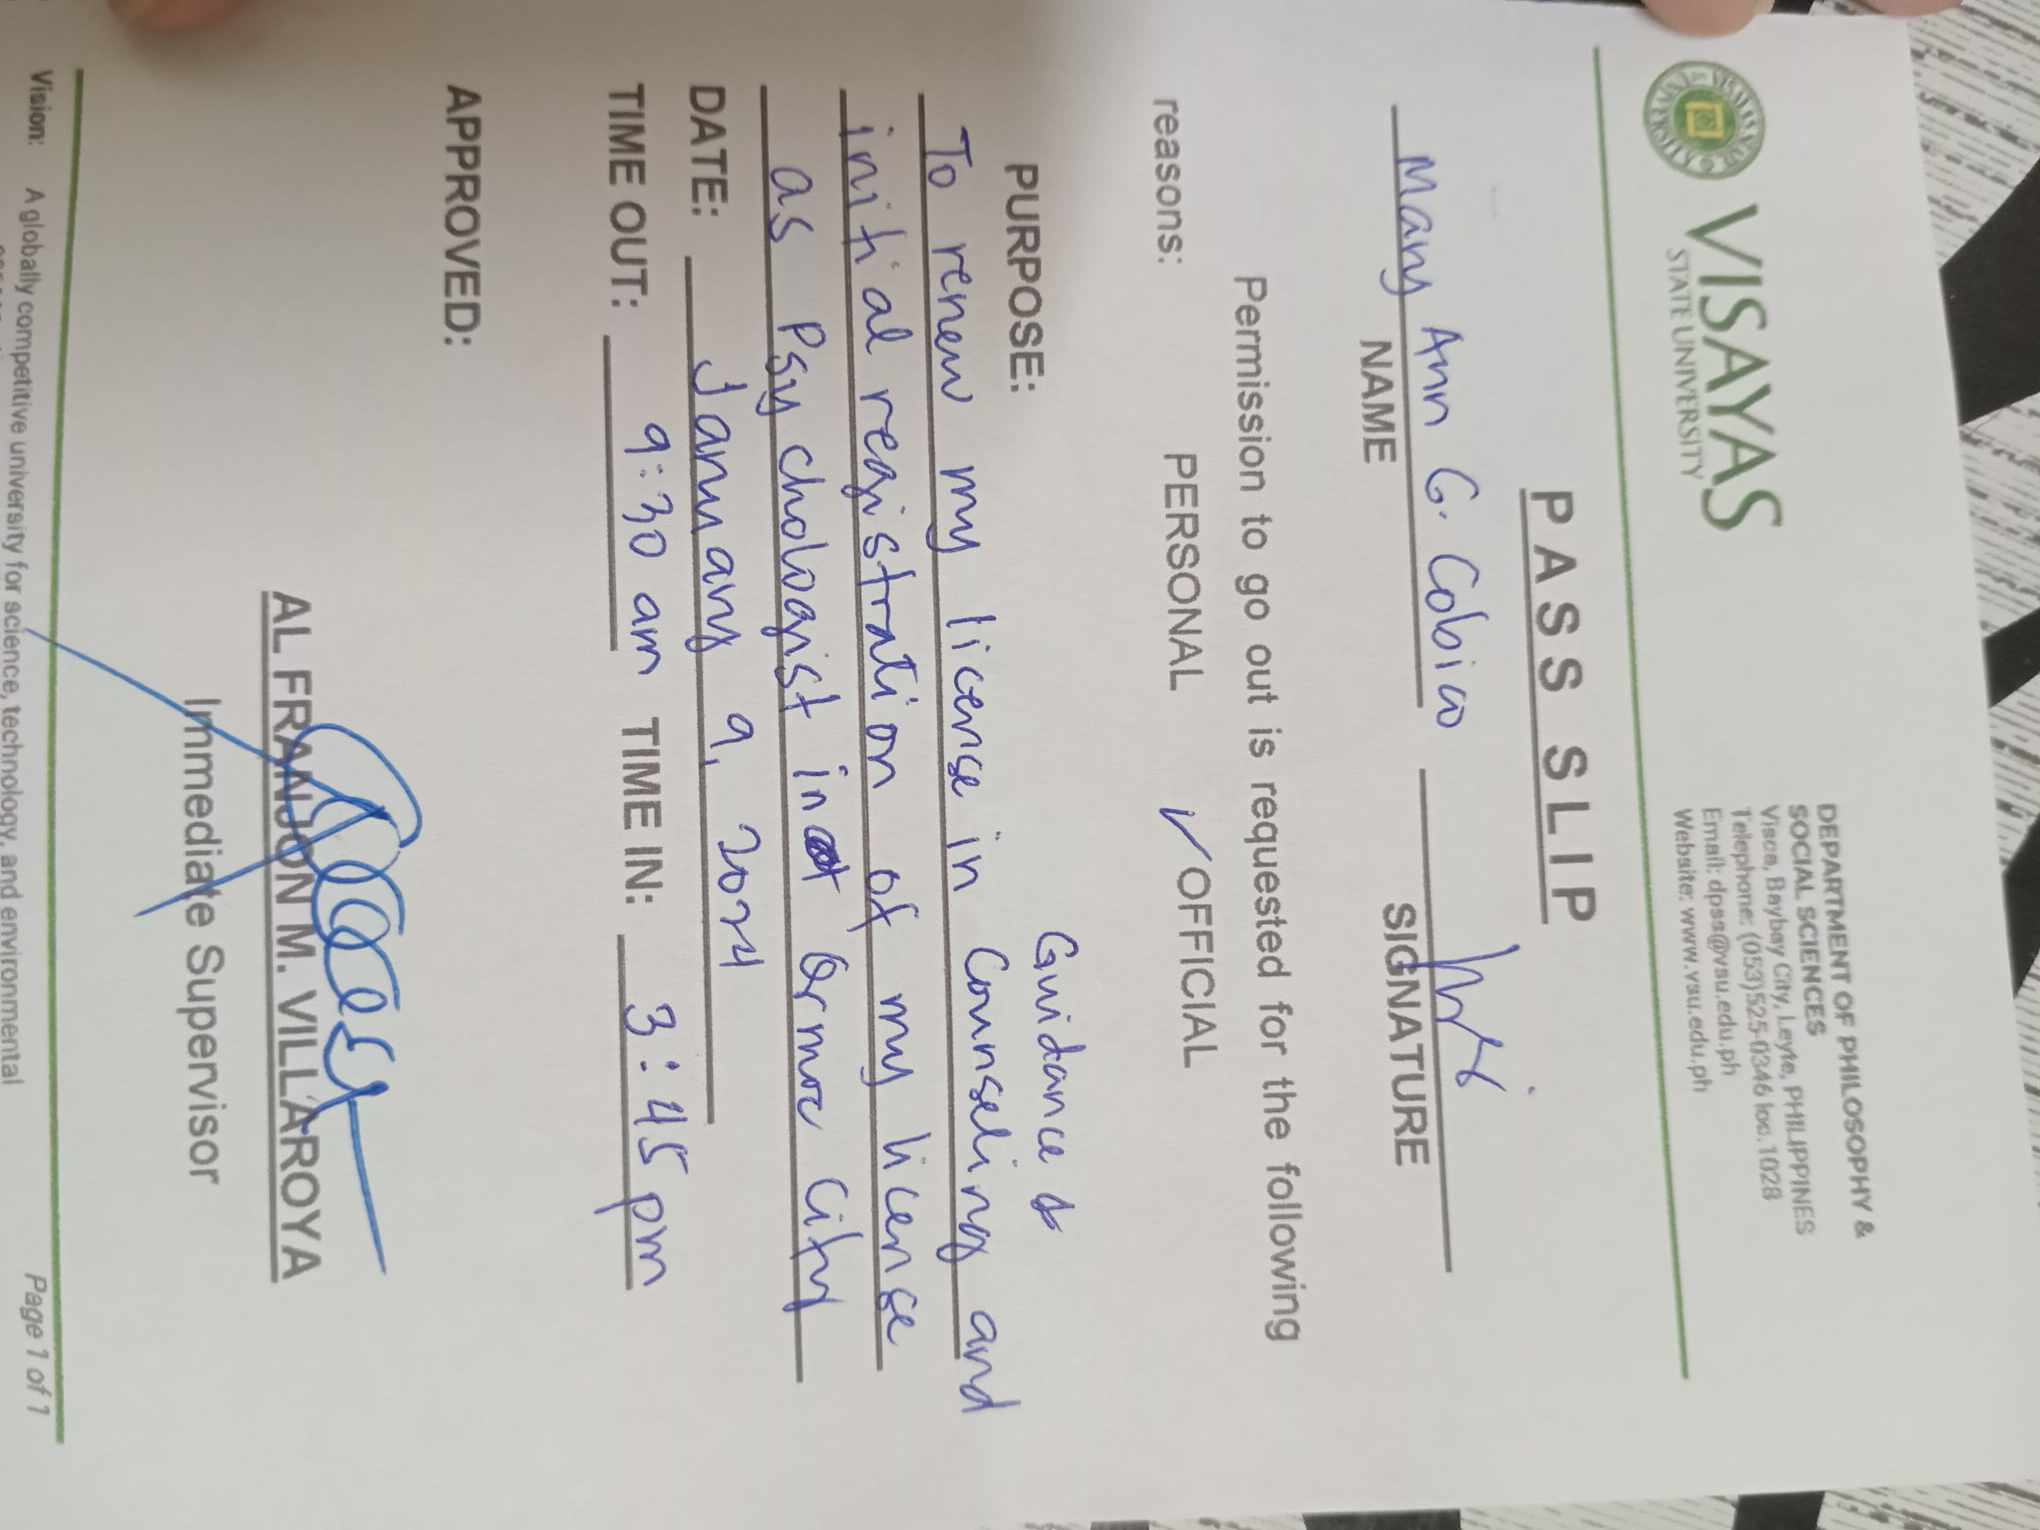 VISAYAS
STATE UNIVERSITY
DEPARTMENT OF PHILOSOPHY &
SOCIAL SCIENCES
Visca, Baybay City, Leyte, PHILIPPINES
Telephone: (053)525-0346 loc. 1028
Email: dpss@vsu.edu.ph
Website: www.vsu.edu.ph
PASS SLIP
Mary Ann G. Cobico
NAME SIGNATURE
Permission to go out is requested for the following
reasons: PERSONAL ✓ OFFICIAL
PURPOSE: Guidance &
To renew my license in Counseling and
initial registration of my license
as Psychologist in Ormoc City
DATE: January 9, 2024
TIME OUT: 9:30 am TIME IN: 3:45 pm
APPROVED:
AL FRANJON M. VILLAROYA
Immediate Supervisor
Vision: A globally competitive university for science, technology, and environmental
Page 1 of 1